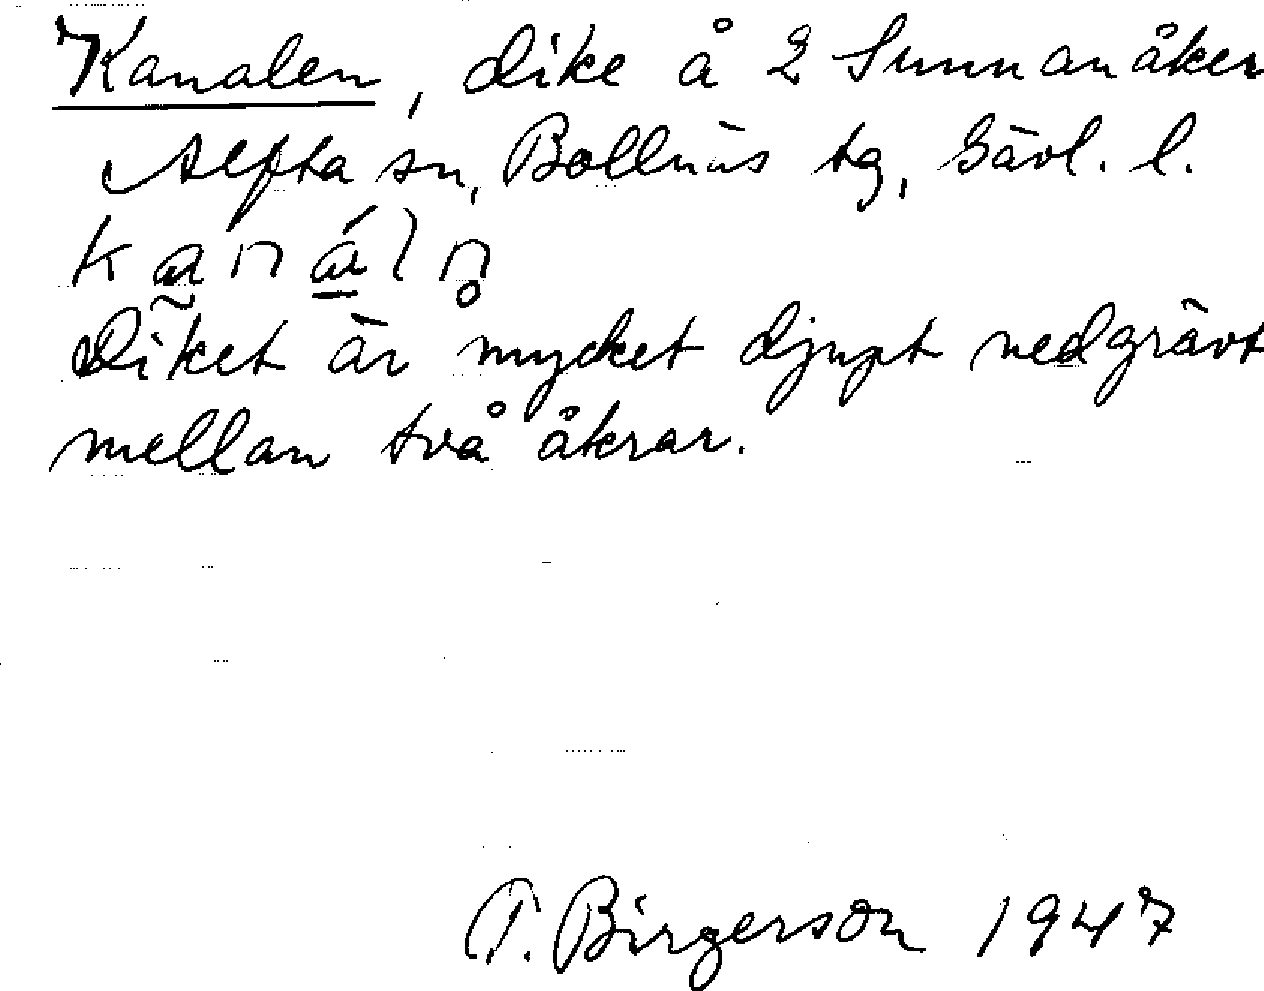 Kanalen, dike å 2 Sunnanåker
Alfta sn, Bollnäs tg, Gävl. l.
ka̰ná̱ln̥
Diket är mycket djupt nedgrävt
mellan två åkrar.
T. Birgerson 1947